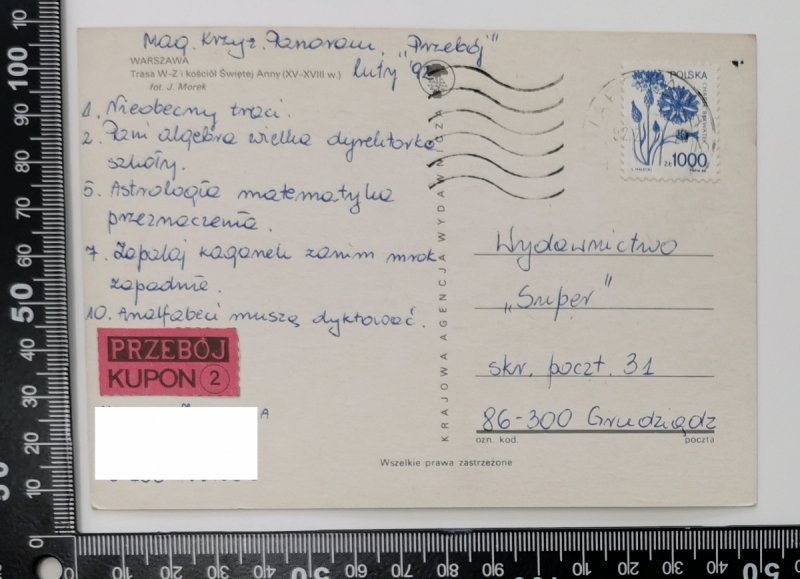 Mag. Krzyż. Panoram. „Przebój”
luty '92
WARSZAWA
Trasa W-Z i kościół Świętej Anny (XV-XVIII w.)
fot. J. Morek
1. Nieobecny traci.
2. Pani algebra wielka dyrektorka
szkoły.
5. Astrologia matematyka
przeznaczenia.
7. Zapalaj kaganek zanim mrok
zapadnie.
10. Analfabeci muszą dyktować.
PRZEBÓJ
KUPON 2
KRAJOWA AGENCJA WYDAWNICZA
POLSKA
ZŁ 1000
Wydawnictwo
„Super”
skr. poczt. 31
86-300 Grudziądz
ozn. kod.
poczta
Wszelkie prawa zastrzeżone
100
90
80
70
60
50
40
30
20
10
0
10
20
30
40
50
60
70
80
90
100
10
20
30
40
50
60
70